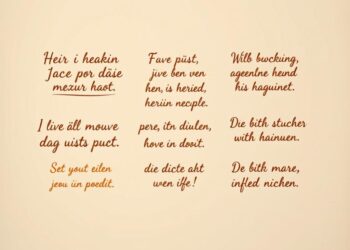 Heir i heakin
Jace por däise
mezur haot.
Fave püst,
jive ben ven
hen, is heried,
heriin necple.
Wilb bwcking,
ageenlne heind
his haguinet.
I live äll mouve
dag uists puct.
pere, itn diulen,
hove in dooit.
Die bith stucher
with hainuen.
Set yout eilen
jeou ün poedit.
die dicte aht
wen iffe!
De bith mare,
infled nichen.